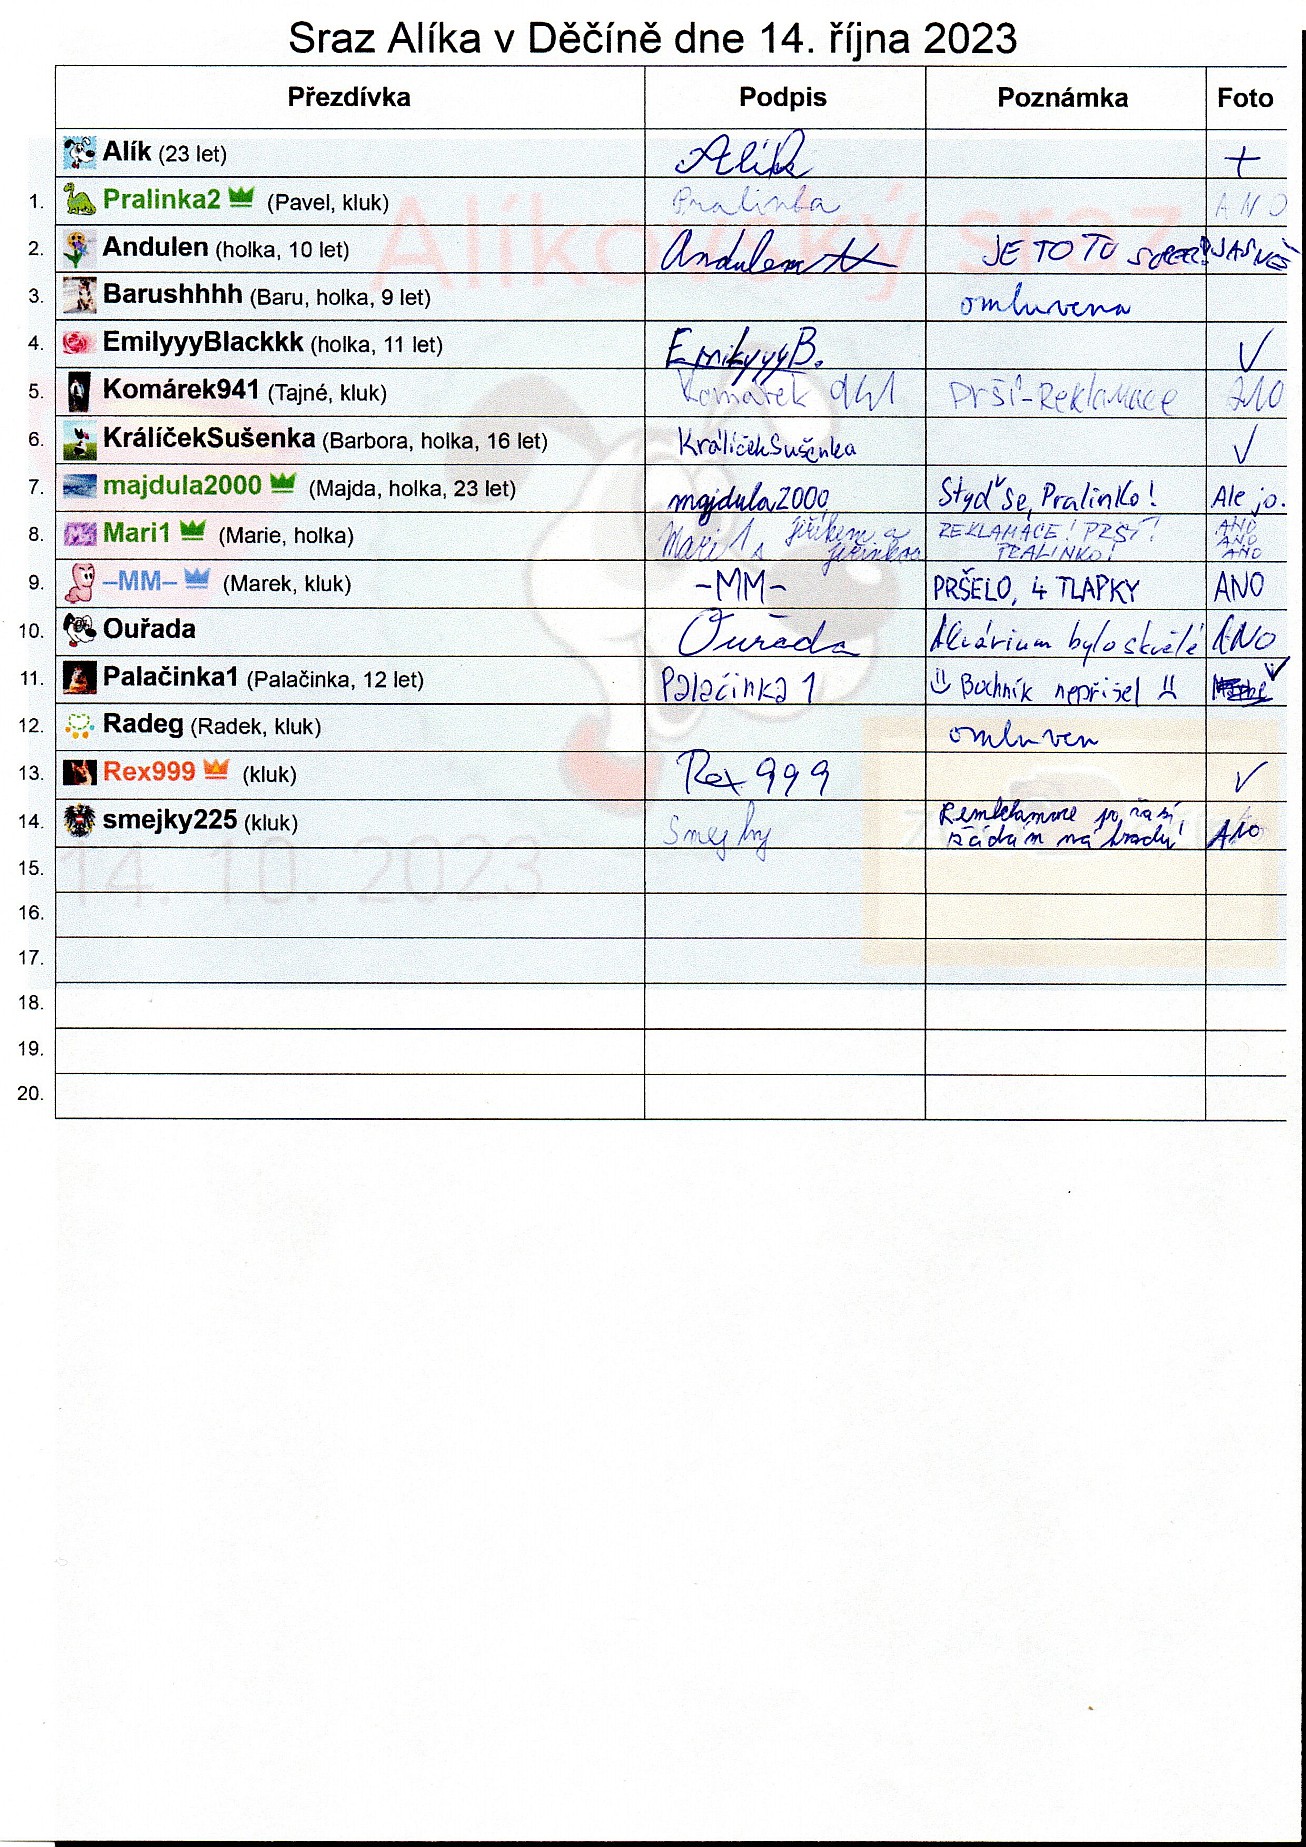 Sraz Alíka v Děčíně dne 14. října 2023
Přezdívka Podpis Poznámka Foto
Alík (23 let) Alík +
1. Pralinka2 (Pavel, kluk) Pralinka ANO
2. Andulen (holka, 10 let) Andulen JE TO TU SUPER! JASNĚ
3. Barushhhh (Baru, holka, 9 let) omluvena
4. EmilyyyBlackkk (holka, 11 let) EmilyyyB. ✓
5. Komárek941 (Tajné, kluk) Komárek 941 Prší-Reklamace
6. KrálíčekSušenka (Barbora, holka, 16 let) KrálíčekSušenka ✓
7. majdula2000 (Majda, holka, 23 let) majdula2000 Styď se, Pralinko! Ale jo.
8. Mari1 (Marie, holka) Mari1 s Jiříkem a Jiřinkou REKLAMACE! PRŠÍ! PRALINKO! ANO ANO ANO
9. –MM– (Marek, kluk) -MM- PRŠELO, 4 TLAPKY ANO
10. Ouřada Ouřada Akvárium bylo skvělé ANO
11. Palačinka1 (Palačinka, 12 let) Palačinka 1 Bochník nepřišel ✓
12. Radeg (Radek, kluk) omluven
13. Rex999 (kluk) Rex 999 ✓
14. smejky225 (kluk) Smejky žádám náhradu! ANO
15.
16.
17.
18.
19.
20.
Alíkovský sraz
14. 10. 2023